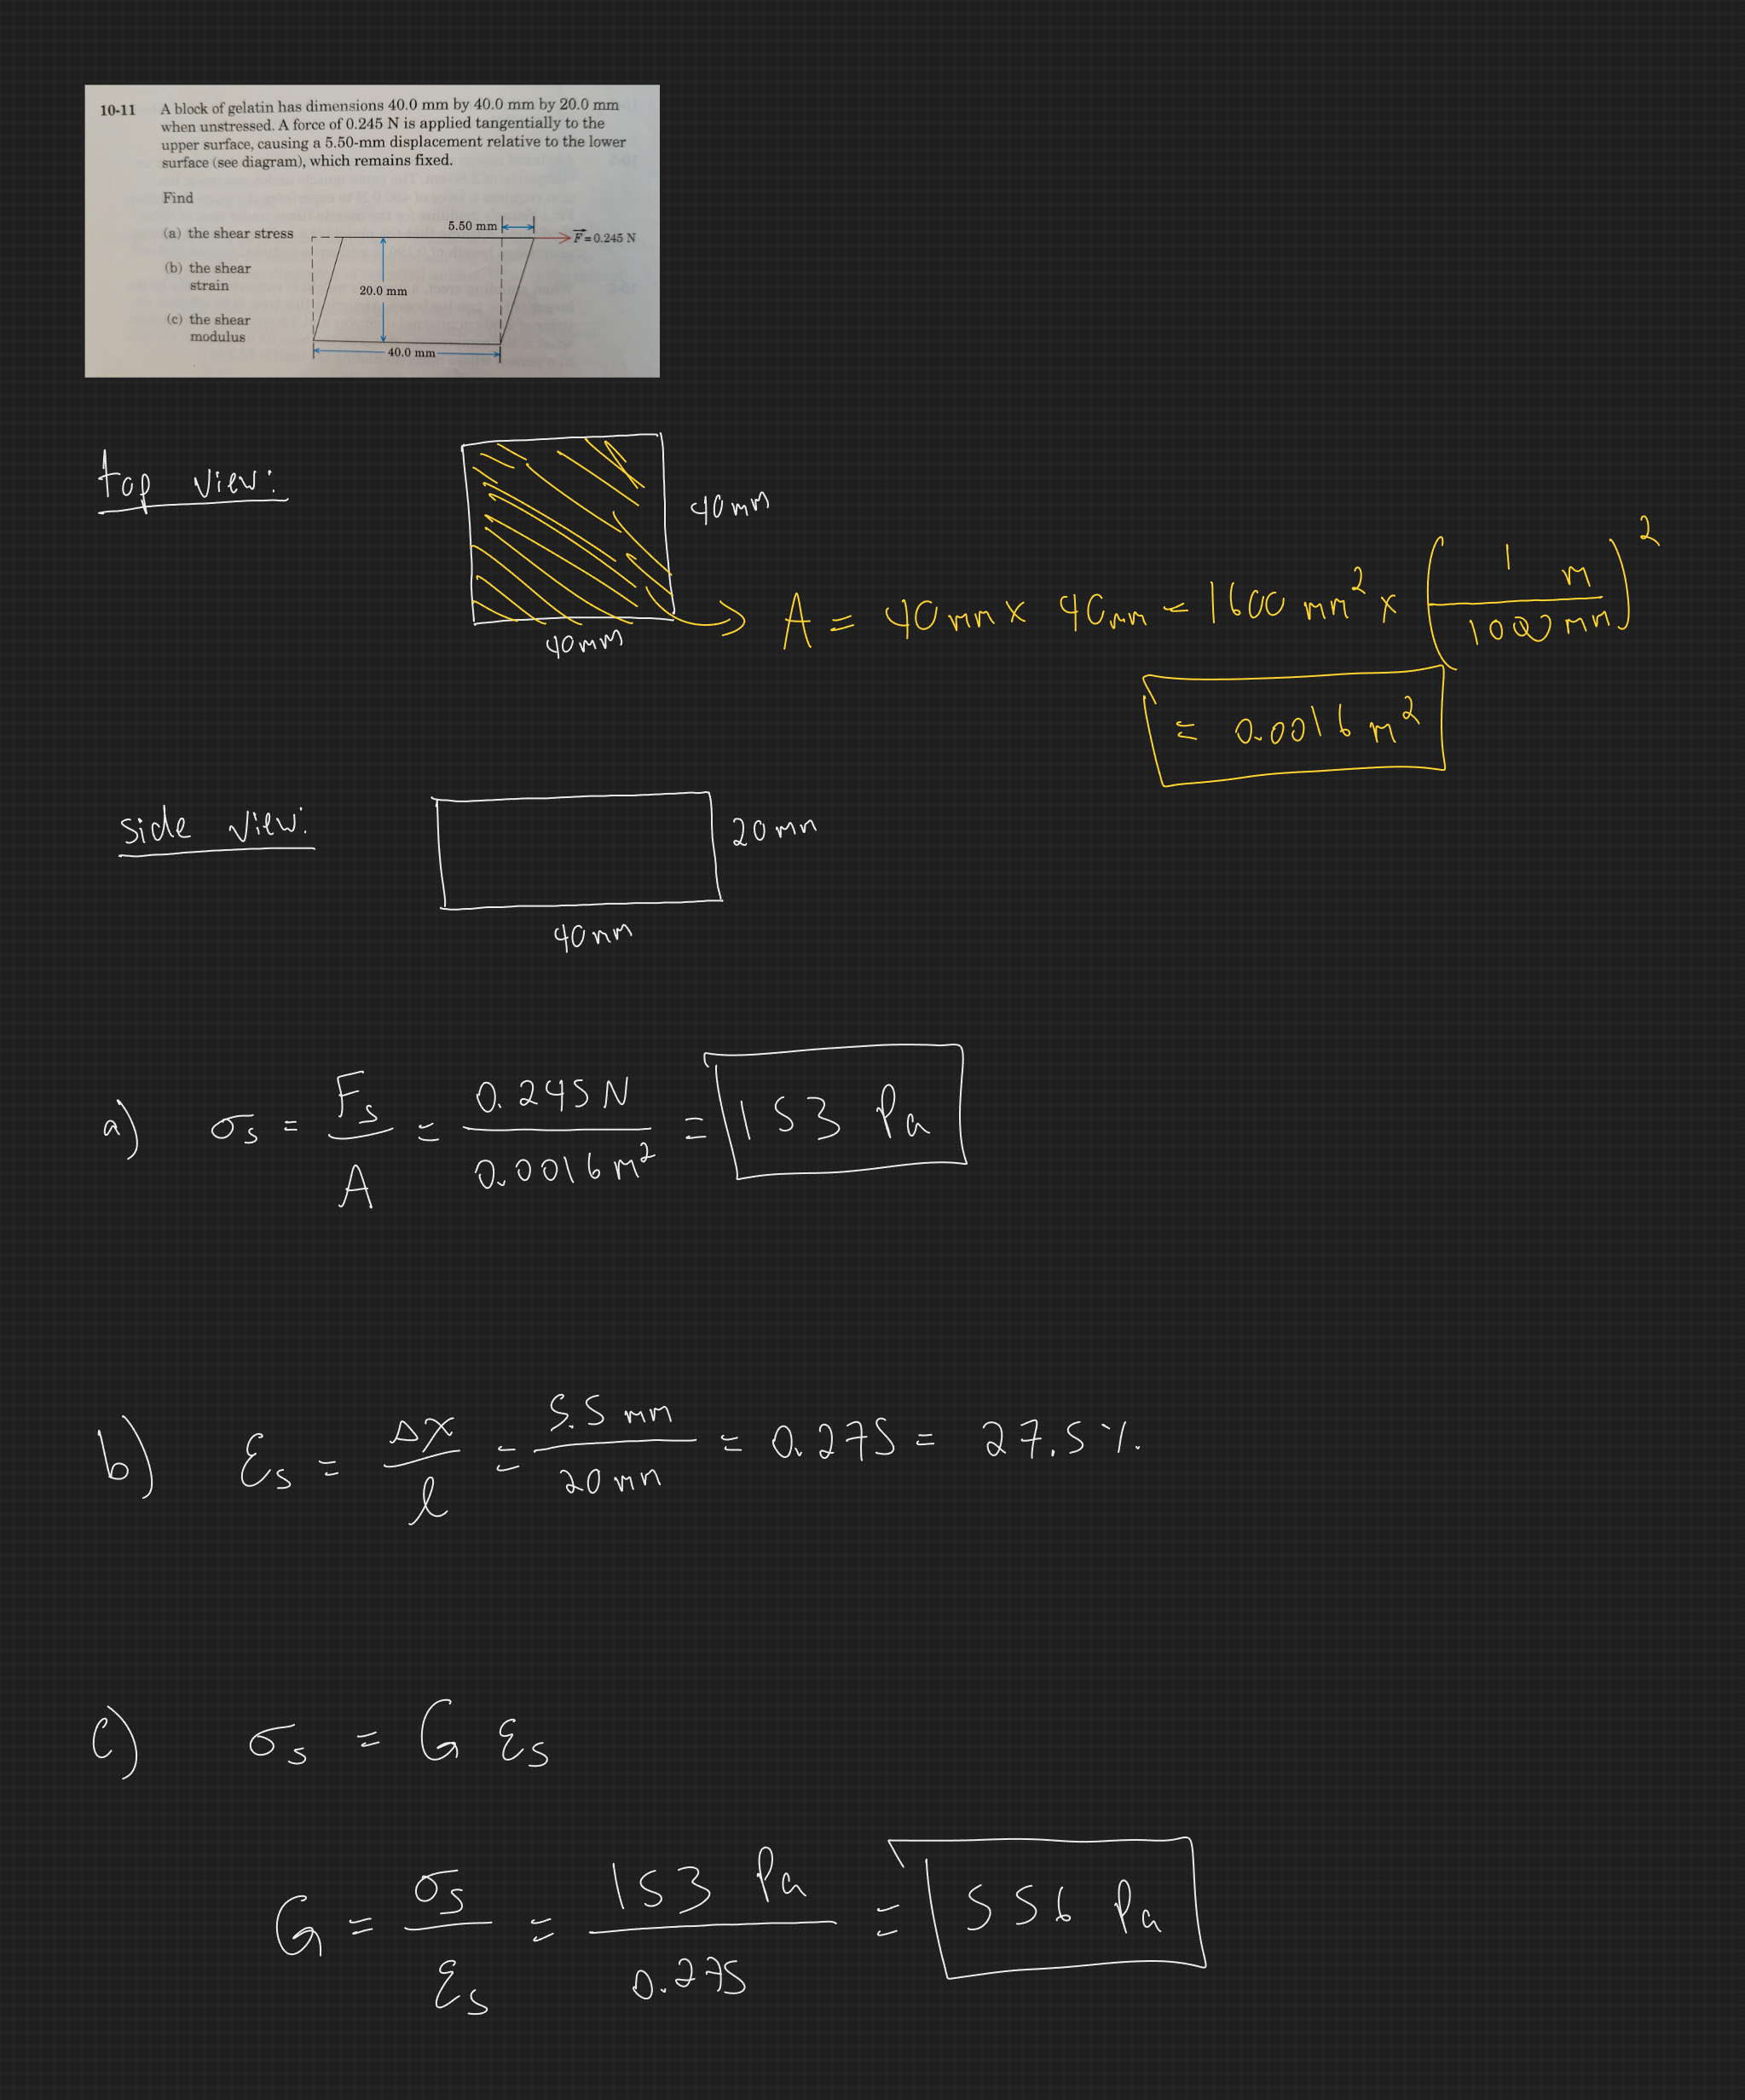 10-11 A block of gelatin has dimensions 40.0 mm by 40.0 mm by 20.0 mm
when unstressed. A force of 0.245 N is applied tangentially to the
upper surface, causing a 5.50-mm displacement relative to the lower
surface (see diagram), which remains fixed.
Find
(a) the shear stress
(b) the shear
strain
(c) the shear
modulus
5.50 mm
F⃗ = 0.245 N
20.0 mm
40.0 mm
top view:
40 mm
40 mm
A = 40 mm x 40 mm = 1600 mm² x (1 m / 1000 mm)²
= 0.0016 m²
side view:
20 mm
40 mm
a) σs = Fs / A = 0.245 N / 0.0016 m² = 153 Pa
b) εs = Δx / l = 5.5 mm / 20 mm = 0.275 = 27.5 %
c) σs = G εs
G = σs / εs = 153 Pa / 0.275 = 556 Pa